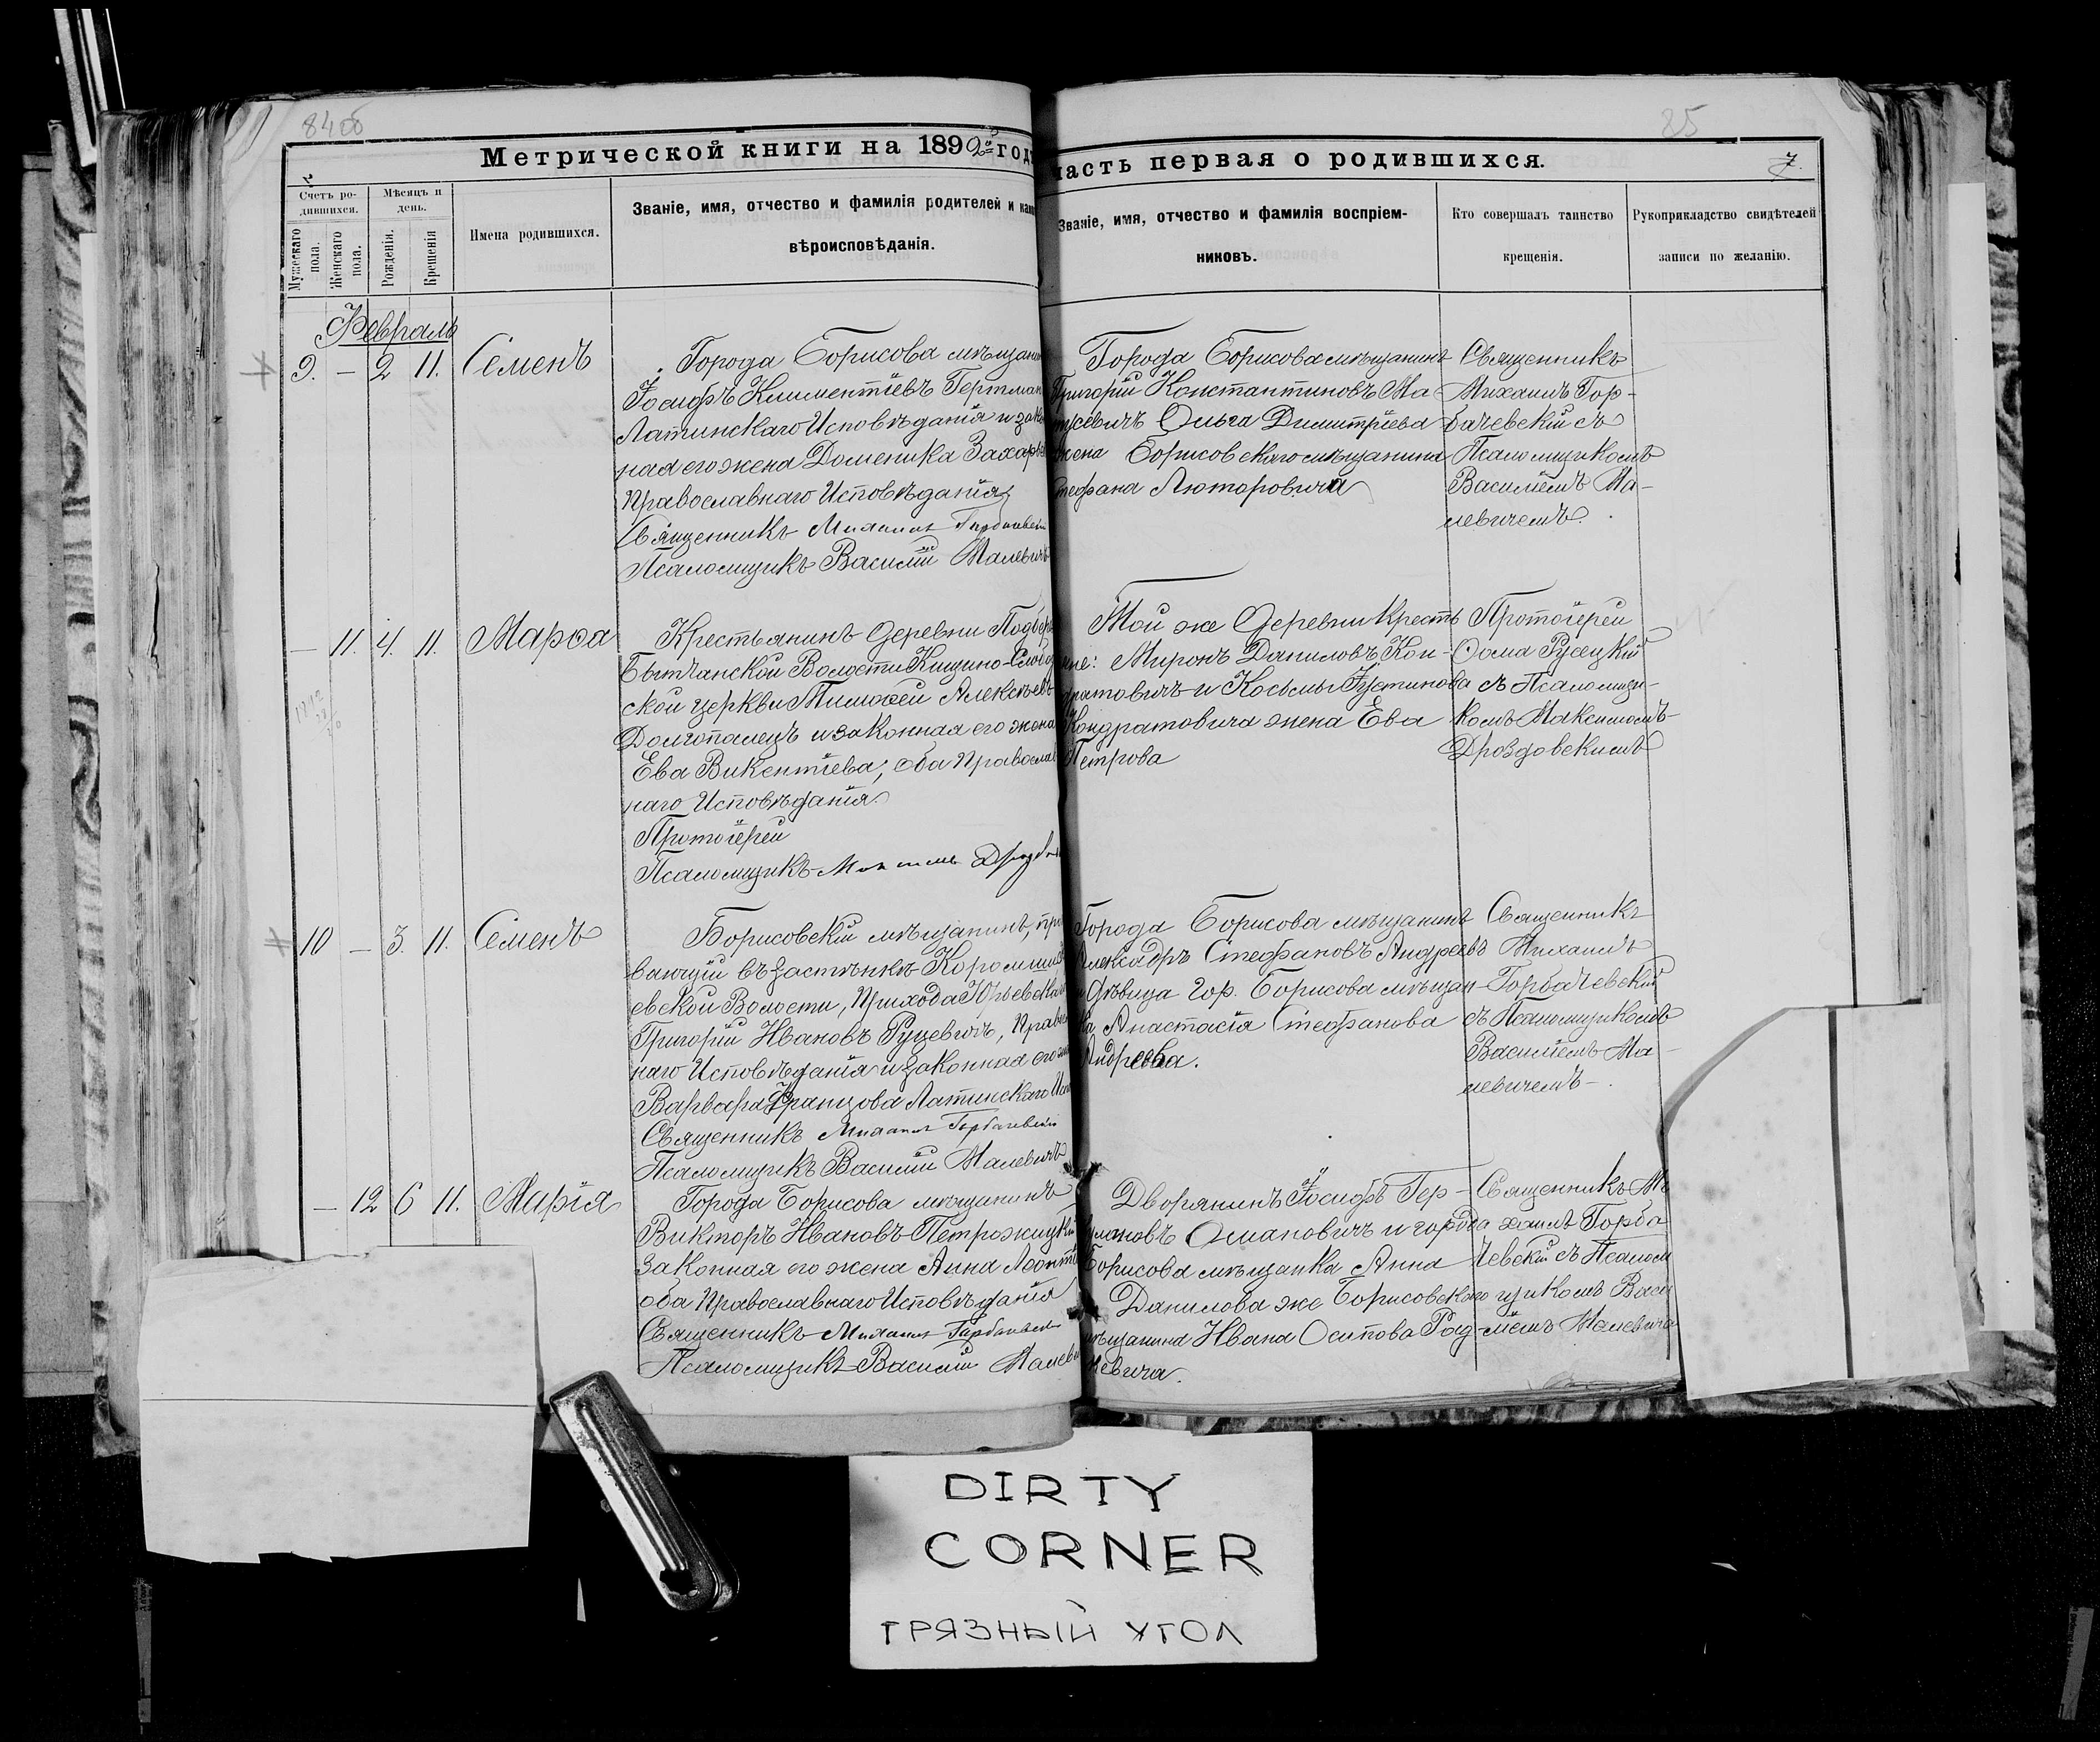 84об
85
Метрической книги на 1892й годъ
часть первая о родившихся.
7.
Счетъ ро-
дившихся.
Мѣсяцъ и
день.
Мужескаго
пола.
Женскаго
пола.
Рожденія.
Крещенія
Имена родившихся.
Званіе, имя, отчество и фамилія родителей и како
вѣроисповѣданія.
Званіе, имя, отчество и фамилія воспріем-
никовъ.
Кто совершалъ таинство
крещенія.
Рукоприкладство свидѣтелей
записи по желанію.
Февраль
9. — 2 11. Семенъ
Города Борисова мѣщанин
Іосифъ Климентіевъ Гертман
Латинскаго Исповѣданія и зако
ная его жена Доменика Захарье
Православнаго Исповѣданія
Священникъ Михаилъ Горбачевскі
Псаломщикъ Василій Малевичъ
Города Борисова мѣщанинъ
Григорій Константиновъ Ма-
тусевичъ Ольга Димитріева
жена Борисовскаго мѣщанина
Стефана Лютаровича
Священникъ
Михаилъ Гор-
бачевскій съ
Псаломщикомъ
Василіемъ Ма-
левичемъ.
— 11. 4. 11. Марѳа
Крестьянинъ Деревни Подбер
Бытчанской Волости Кищино-Слобод
ской церкви Тимоѳей Алексѣевъ
Долгопалецъ и законная его жена
Ева Викентіева, оба Православ
наго Исповѣданія.
Протоіерей
Псаломщикъ Максимъ Дроздов
Той же Деревни Крестья
не: Миронъ Даниловъ Кон-
дратовичъ и Косьмы Іустинова
Кондратовича жена Ева
Петрова
Протоіерей
Ѳома Русецкій
съ Псаломщи-
комъ Максимомъ
Дроздовскимъ
10 — 3. 11. Семенъ
Борисовскій мѣщанинъ, про
вающій въ застѣнкѣ
евской Волости, Прихода Юрьевска
Григорій Ивановъ Руцевичъ, Правос
наго Исповѣданія и законная его
Варвара Францова Латинскаго Исп
Священникъ Михаилъ Горбачевскій
Псаломщикъ Василій Малевичъ
Города Борисова мѣщанинъ
Алексадръ Стефановъ Андреевъ
и Дѣвица гор. Борисова мѣщан-
ка Анастасія Стефанова
Андреева.
Священникъ
Михаилъ
Горбачевскій
съ Псаломщикомъ
Василіемъ Ма-
левичемъ —.
— 12 6 11. Марія
Города Борисова мѣщанинъ
Викторъ Ивановъ Петрожицкій
Законная его жена Анна Леонт
оба Православнаго Исповѣданія
Священникъ Михаилъ Горбачевск
Псаломщикъ Василій Малеви
Дворянинъ Іосифъ Гер-
мановъ Османовичъ и города
Борисова мѣщанка Анна
Данилова же Борисовскаго
мѣщанина Ивана Осипова Рад-
кевича.
Священникъ Ми
хаилъ Горба
чевскій съ Псалом
щикомъ Васи
ліемъ Малевича
DIRTY
CORNER
ГРЯЗНЫЙ УГОЛ